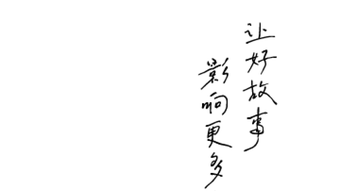 让好故事
影响更多